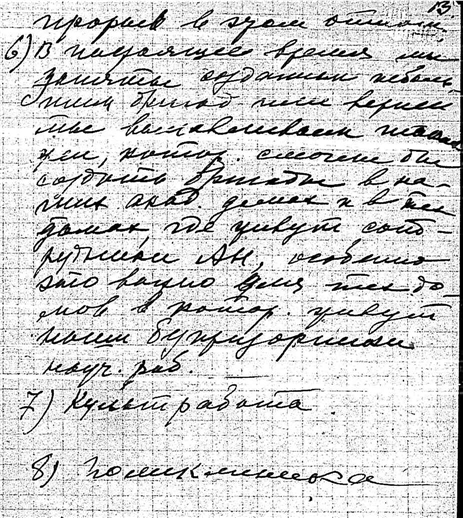 13.
прорыв в этом отнош.
6) В настоящее время мы
заняты созданием неболь-
ших бригад или вернее
мы вылавливаем
, котор. смогли бы
создать бригады в на-
ших акад. домах и в тех
домах, где живут сот-
рудники АН, особенно
это важно для тех до-
мов в котор. живут
наши
науч. раб.
7) Культработа
8) Поликлиника